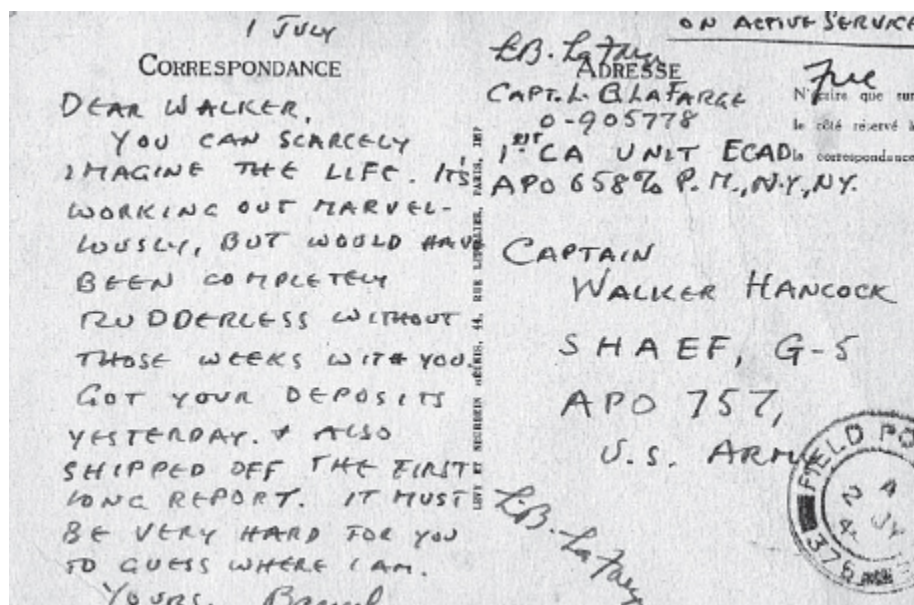 1 JULY
CORRESPONDANCE
DEAR WALKER,
YOU CAN SCARCELY
IMAGINE THE LIFE. IT'S
WORKING OUT MARVEL-
LOUSLY, BUT WOULD HAVE
BEEN COMPLETELY
RUDDERLESS WITHOUT
THOSE WEEKS WITH YOU
GOT YOUR DEPOSITS
YESTERDAY. & ALSO
SHIPPED OFF THE FIRST
LONG REPORT. IT MUST
BE VERY HARD FOR YOU
TO GUESS WHERE I AM.
YOURS,
LEVY ET NEURDEIN RÉUNIS, 44, RUE LETELLIER, PARIS,
ON ACTIVE SERVICE
L.B. LaFarge
ADRESSE
Free
N'écrire que sur
le côté réservé à
la correspondance
CAPT. L. B. LAFARGE
0-905778
1ST CA UNIT ECAD
APO 658 % P.M., N.Y., N.Y.
CAPTAIN
WALKER HANCOCK
SHAEF, G-5
APO 757,
U.S. ARMY
L.B. LaFarge
FIELD PO
4
JY